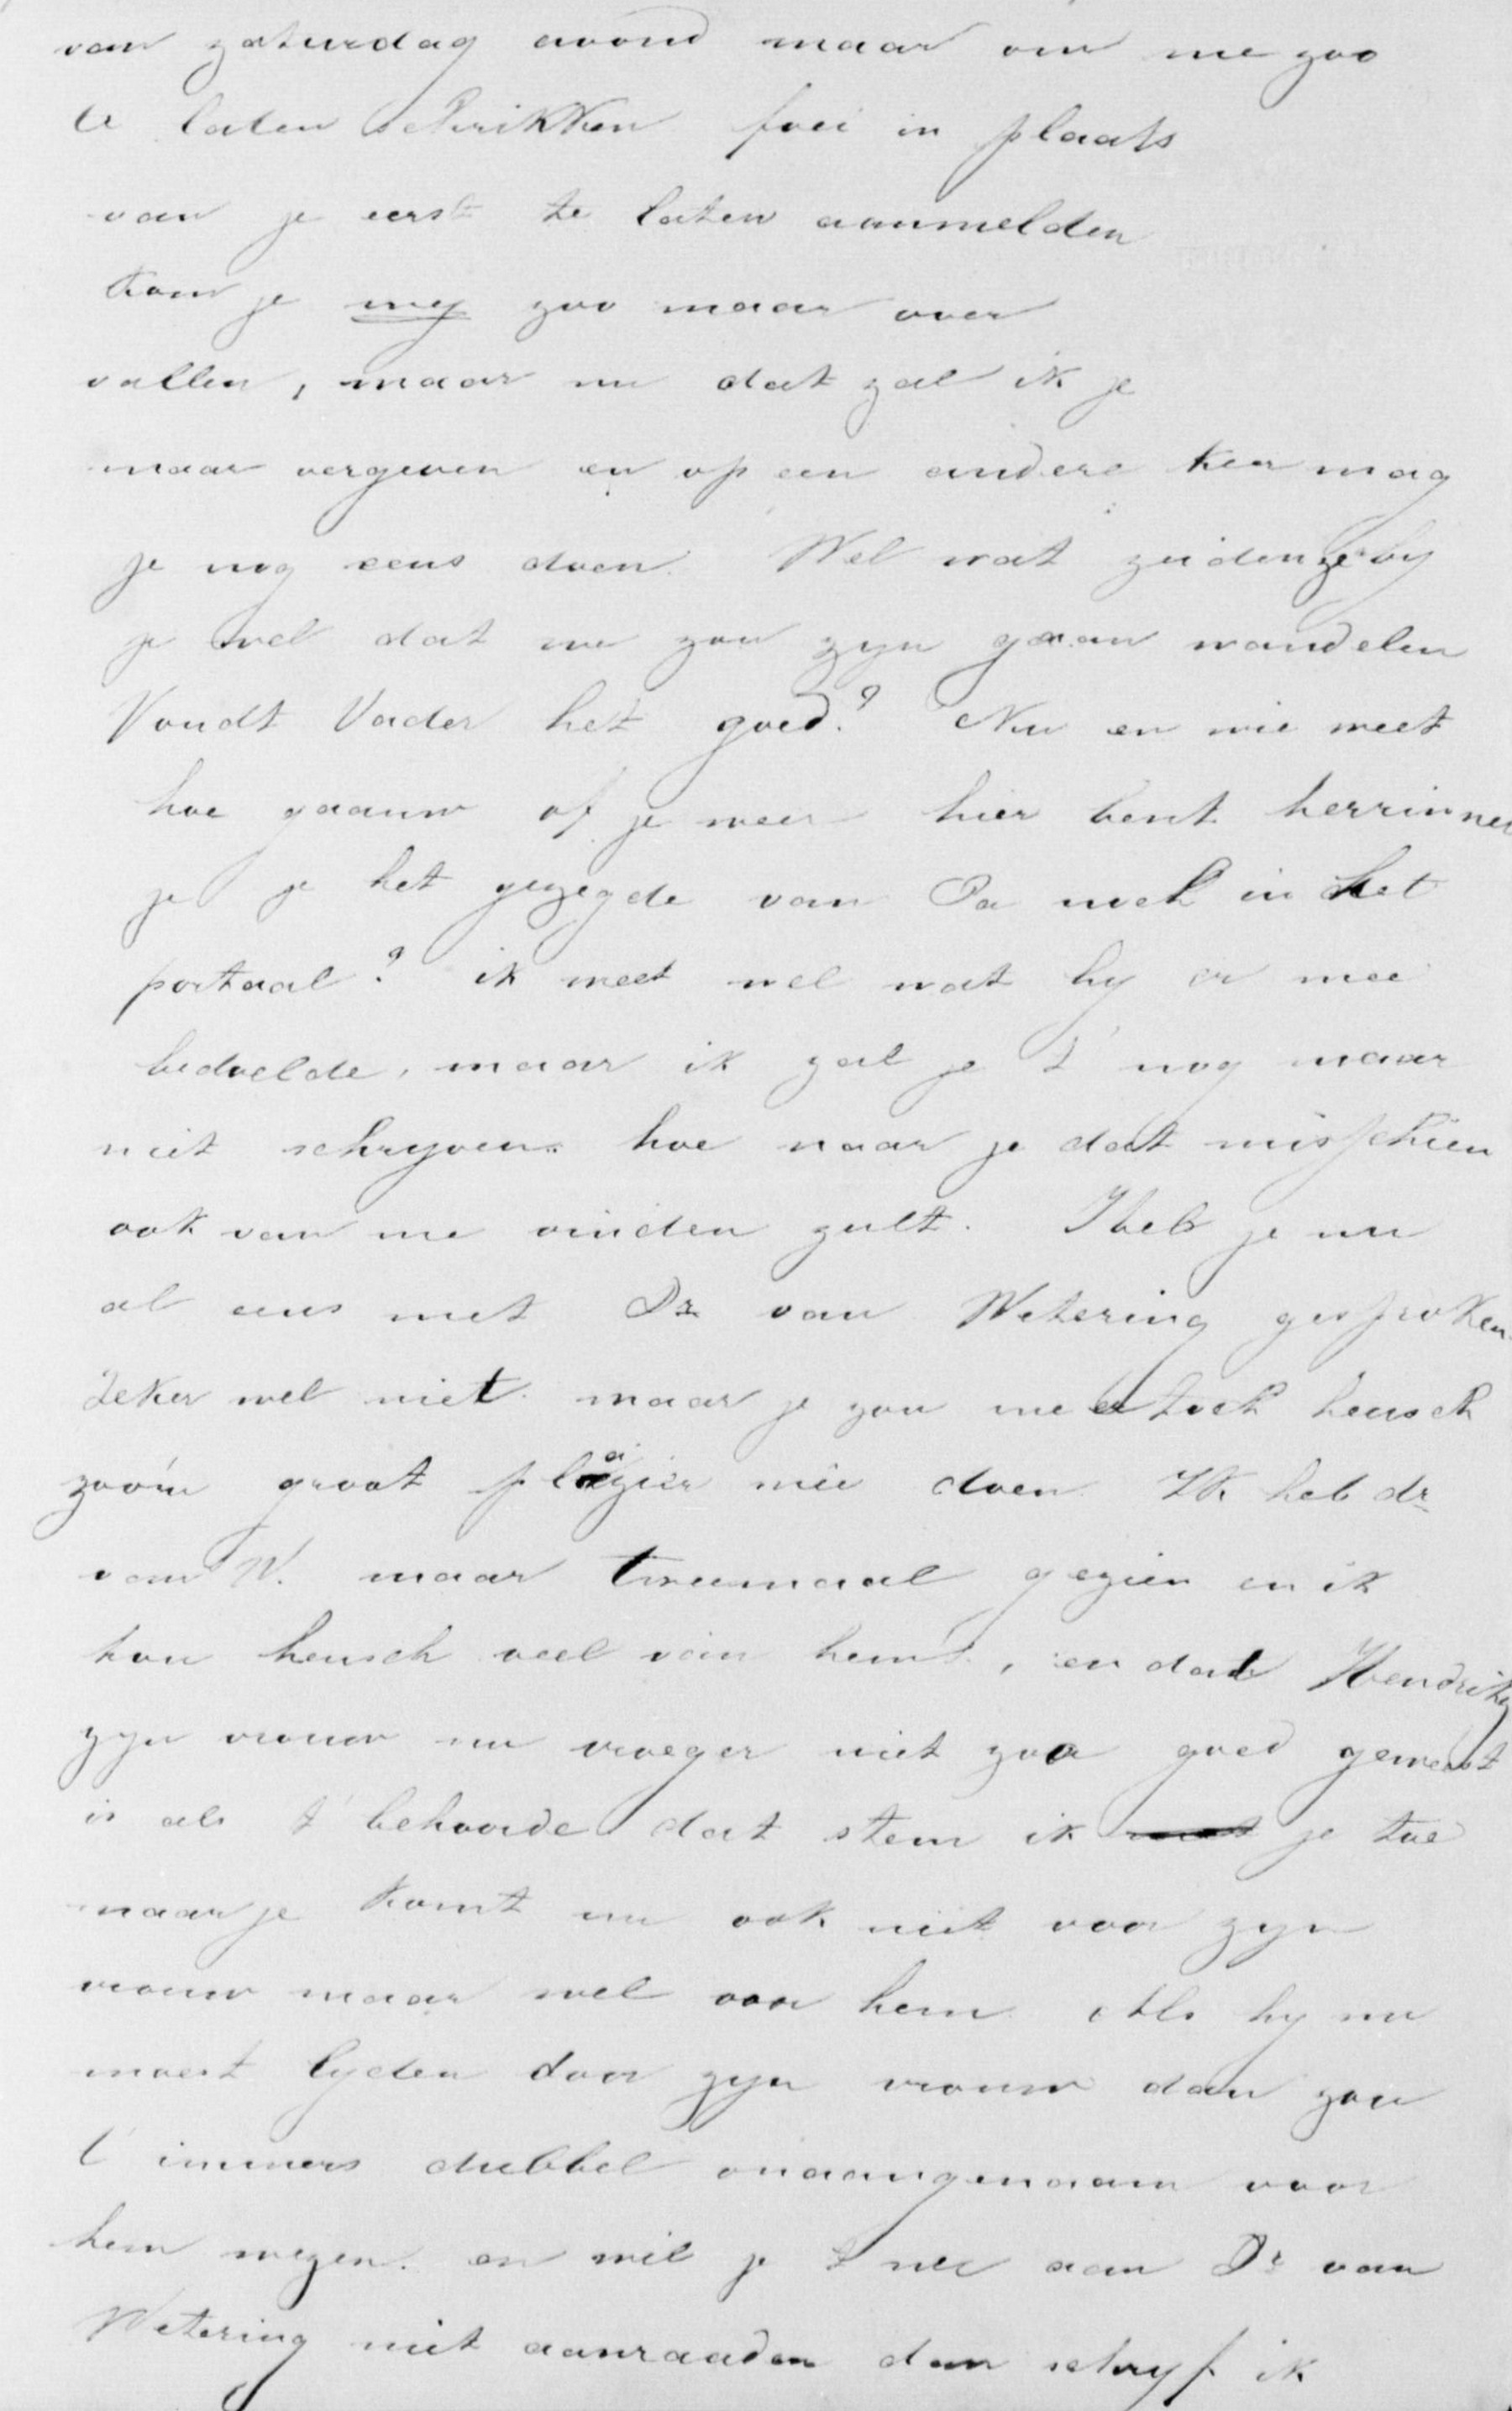 van zaturdag avond maar om me zoo
te laten schrikken foei in plaats
van je eerst te laten aanmelden
kom je my zoo maar over
vallen, maar nu dat zal ik je
maar vergeven en op een andere keer mag
je nog eens doen. Wel wat zeiden ze by
je wel dat we zou zyn gaan wandelen
Vondt Vader het goed? Nu en wie weet
hoe gaauw of je weer hier bent herrinner
je je het gezegde van Pa noch in het
portaal? ik weet wel wat hy er mee
bedoelde, maar ik zal je t' nog maar
niet schryven. hoe naar je dat misschien
ook van me vinden zult. Heb je nu
al eens met Dr van Wetering gesproken
zeker wel niet. maar je zou me er toch heusch
zoo'n groot plaizier mee doen. Ik heb dr
van W. maar tweemaal gezien en ik
hou heusch veel van hem, en dat Hendrika
zyn vrouw nu vroeger niet zoo goed geweest
is als t' behoorde dat stem ik je toe
maar je komt nu ook niet voor zyn
vrouw maar wel voor hem. Als hy nu
moest lyden door zyn vrouw dan zou
t' immers dubbel onaangenaam voor
hem wezen. en wil je t nu aan Dr van
Wetering niet aanraaden dan schryf ik